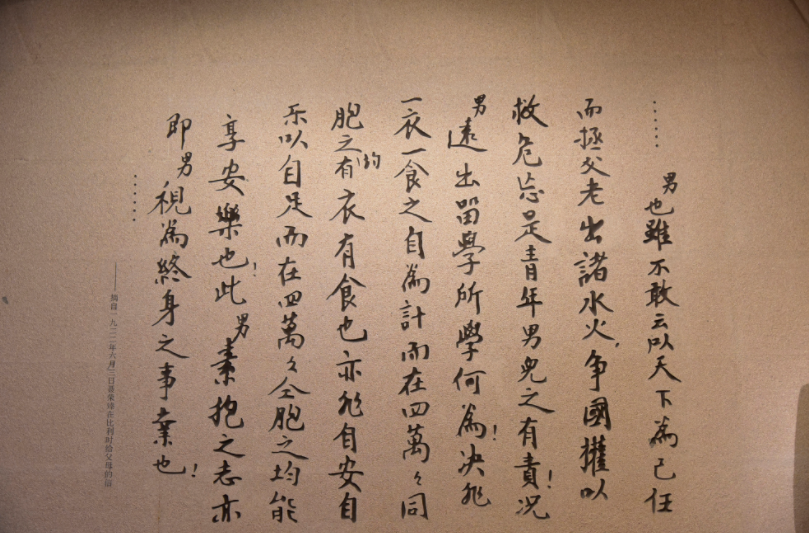 ……男也雖不敢云以天下為己任
而拯父老出諸水火，争國權以
救危忘是青年男兒之有責！况
男遠出留學所學何為！决非
一衣一食之自為計而在四萬々同
胞之均有衣有食也亦非自安自
乐以自足而在四萬々仝胞之均能
享安樂也！此男素抱之志亦
即男視為終身之事業也！……
——摘自一九二二年六月三日聂荣臻在比利时给父母的信